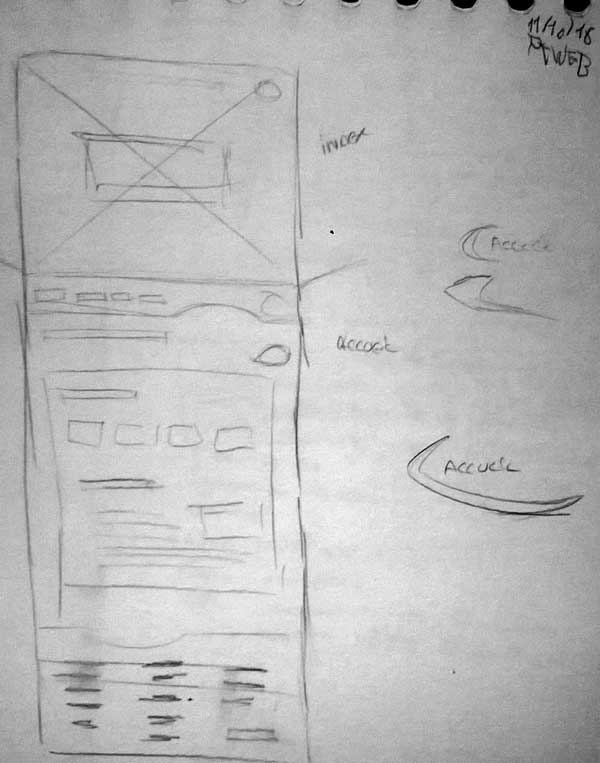 11/10/18
PTWEB
index
Accueil
accueil
ACCUEIL